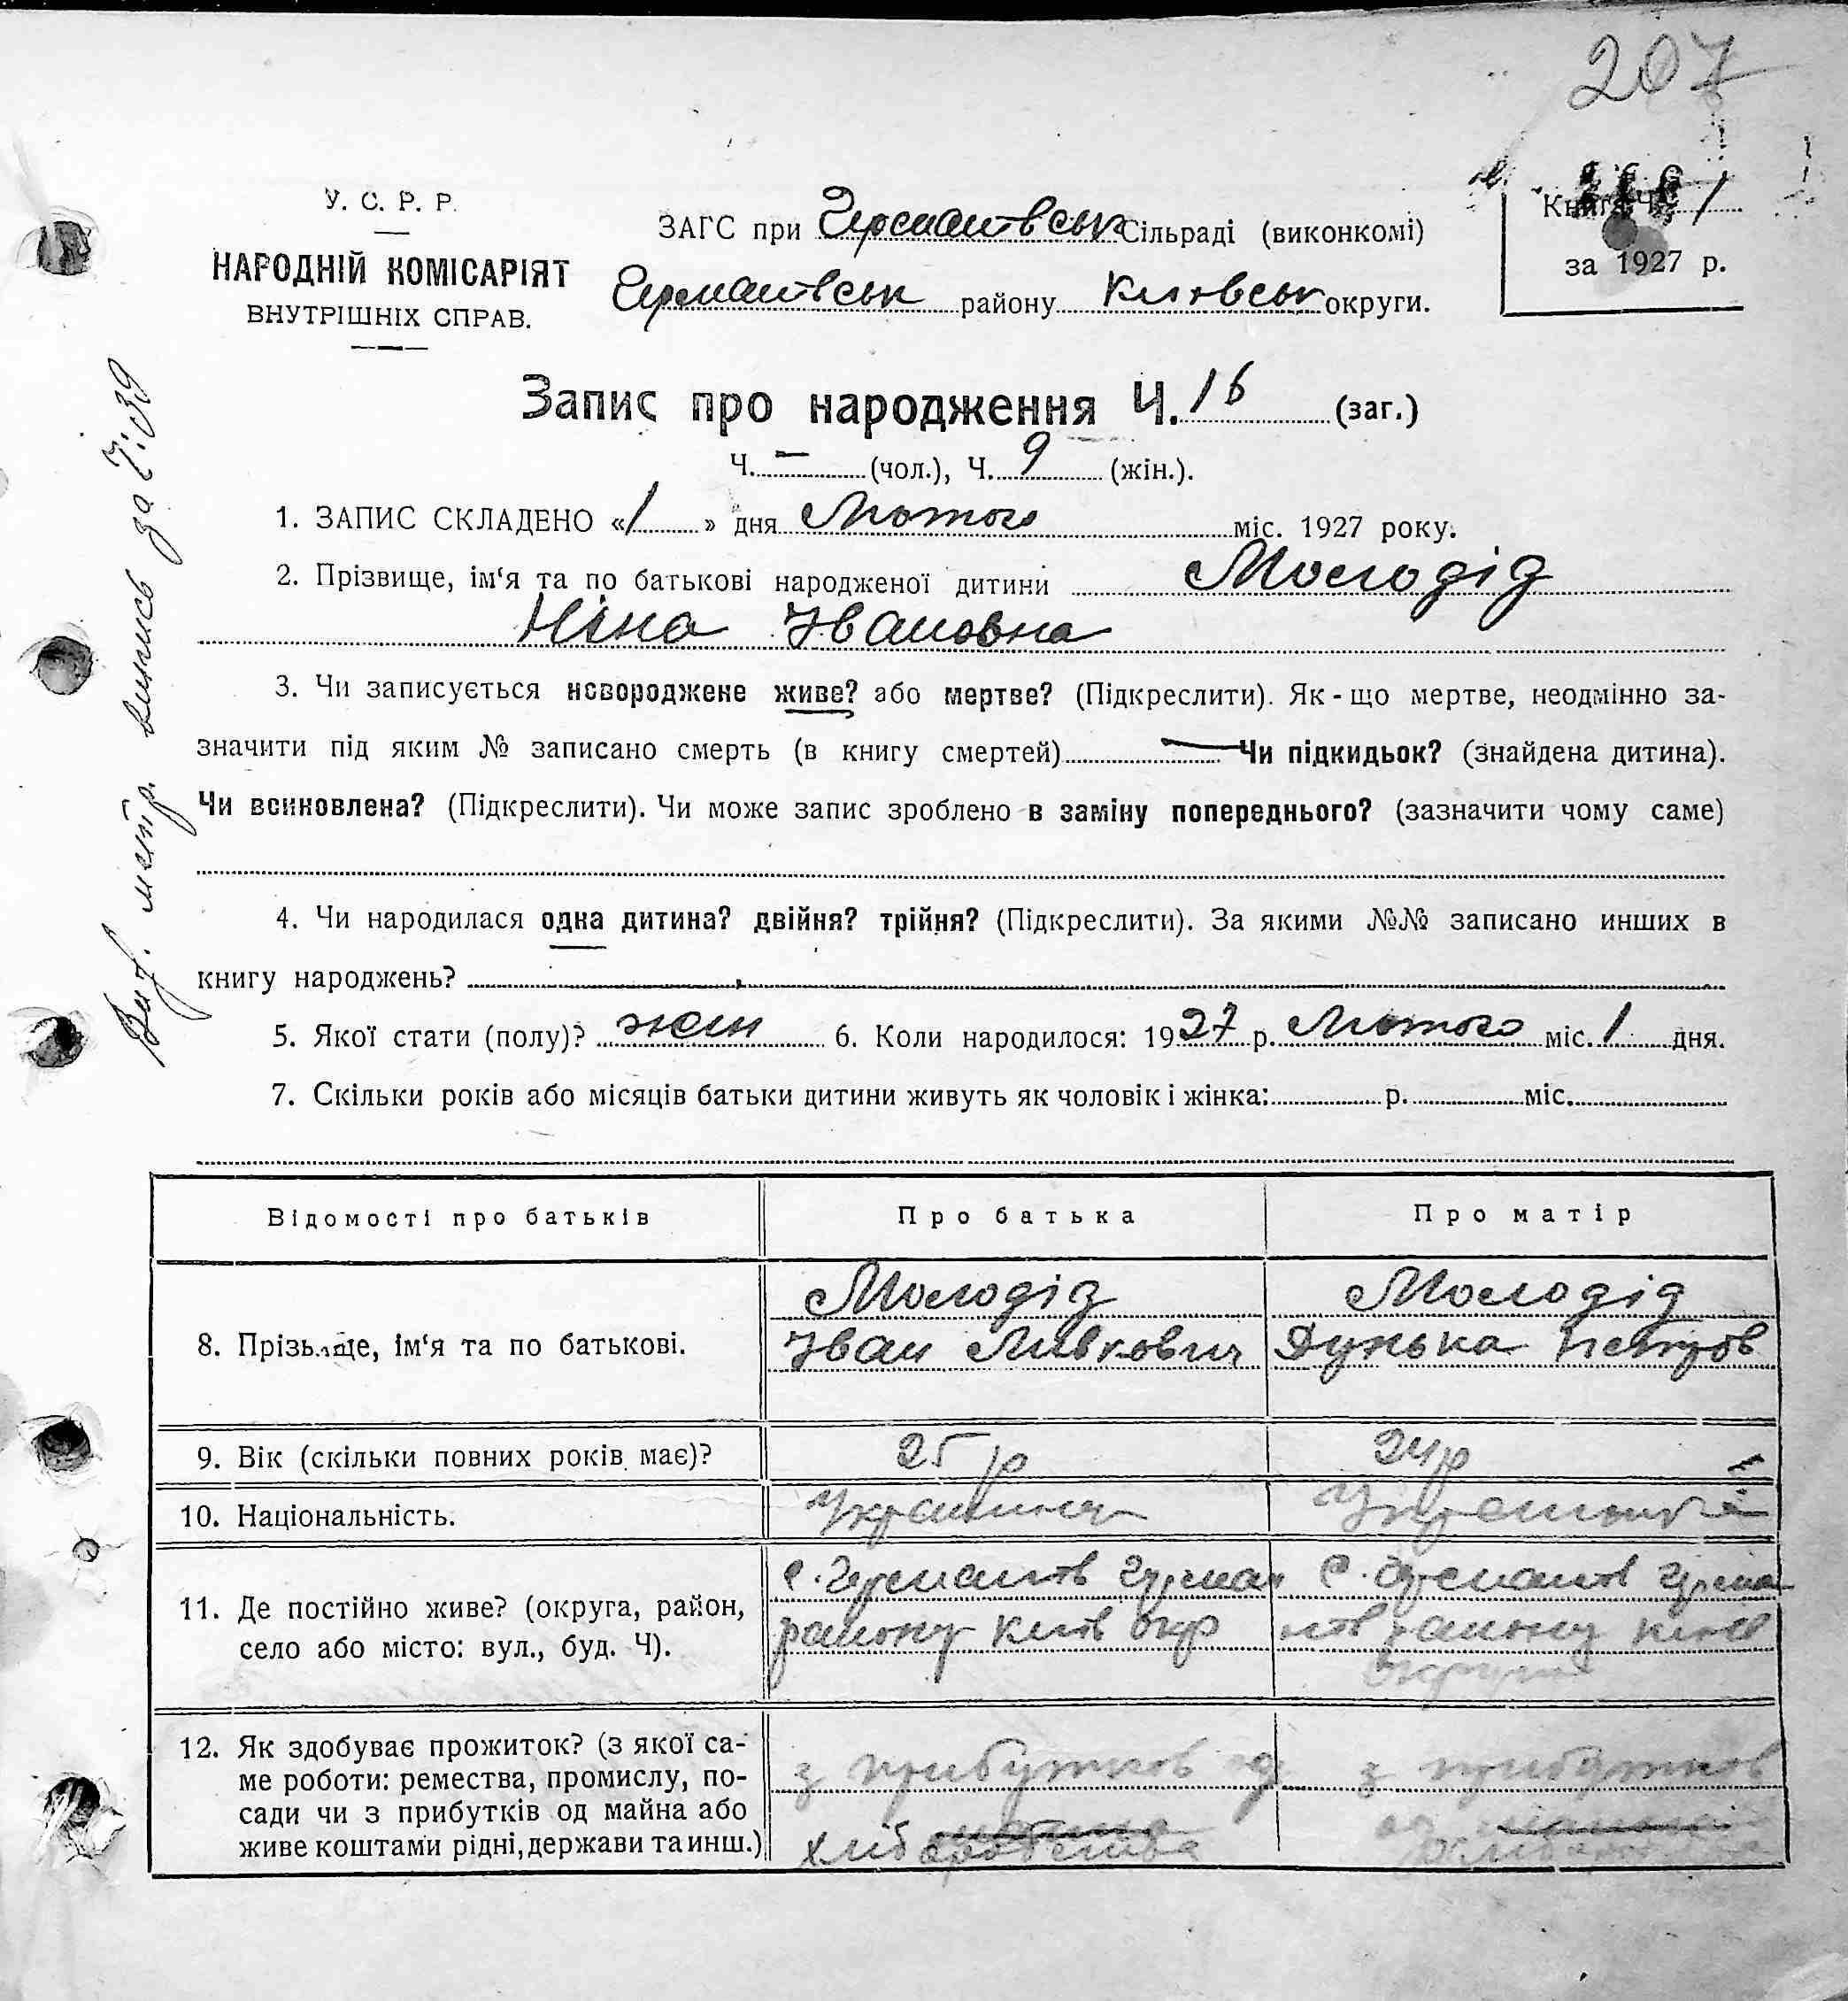 207
У. С. Р. Р.
НАРОДНІЙ КОМІСАРІЯТ
ВНУТРІШНІХ СПРАВ.
ЗАГС при Германтвськ Сільраді (виконкомі)
Германтвськ району Київськ округи.
Книга Ч. 1
за 1927 р.
Запис про народження Ч. 16 (заг.)
Ч. — (чол.), Ч. 9 (жін.).
1. ЗАПИС СКЛАДЕНО «1» дня Лютого міс. 1927 року.
2. Прізвище, ім‘я та по батькові народженої дитини Молодід
Ніна Івановна
3. Чи записується новороджене живе? або мертве? (Підкреслити). Як-що мертве, неодмінно за-
значити під яким № записано смерть (в книгу смертей) — Чи підкидьок? (знайдена дитина).
Чи всиновлена? (Підкреслити). Чи може запис зроблено в заміну попереднього? (зазначити чому саме)
4. Чи народилася одна дитина? двійня? трійня? (Підкреслити). За якими №№ записано инших в
книгу народжень?
5. Якої стати (полу)? жін 6. Коли народилося: 1927 р. Лютого міс. 1 дня.
7. Скільки років або місяців батьки дитини живуть як чоловік і жінка: р. міс.
Відомості про батьків Про батька Про матір
8. Прізьвище, ім‘я та по батькові.
Молодід
ІванЛивкович
Молодід
Дунька Петров
9. Вік (скільки повних років має)? 25 р 24 р
10. Національність. Украинец
11. Де постійно живе? (округа, район,
село або місто: вул., буд. Ч).
с. Германтв Герман
району Київ окр
с. Германтв Герма
нтв району Київ
округи
12. Як здобуває прожиток? (з якої са-
ме роботи: ремества, промислу, по-
сади чи з прибутків од майна або
живе коштами рідні, держави та инш.)
з прибутков од
хлиборобства
з прибутков
од
Вид. метр. выпись за 7.39